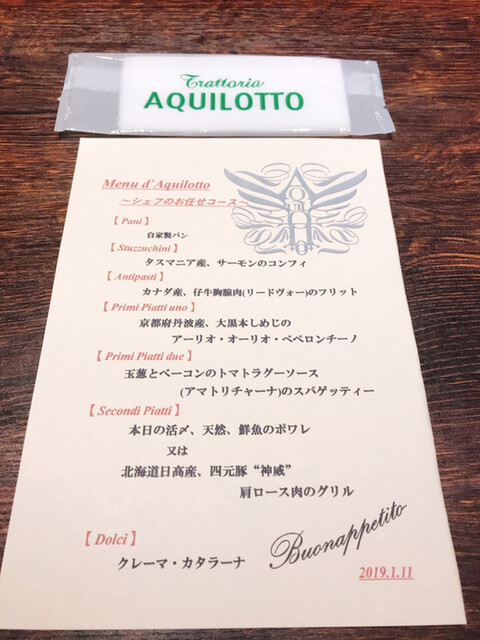 Trattoria
AQUILOTTO
Menu d`Aquilotto
～シェフのお任せコース～
【 Pani 】
自家製パン
【 Stuzzuchini 】
タスマニア産、サーモンのコンフィ
【 Antipasti 】
カナダ産、仔牛胸腺肉(リードヴォー)のフリット
【 Primi Piatti uno 】
京都府丹波産、大黒本しめじの
アーリオ・オーリオ・ペペロンチーノ
【 Primi Piatti due 】
玉葱とベーコンのトマトラグーソース
(アマトリチャーナ)のスパゲッティー
【 Secondi Piatti 】
本日の活〆、天然、鮮魚のポワレ
又は
北海道日高産、四元豚“神威”
肩ロース肉のグリル
【 Dolci 】
クレーマ・カタラーナ
Buonappetito
2019.1.11